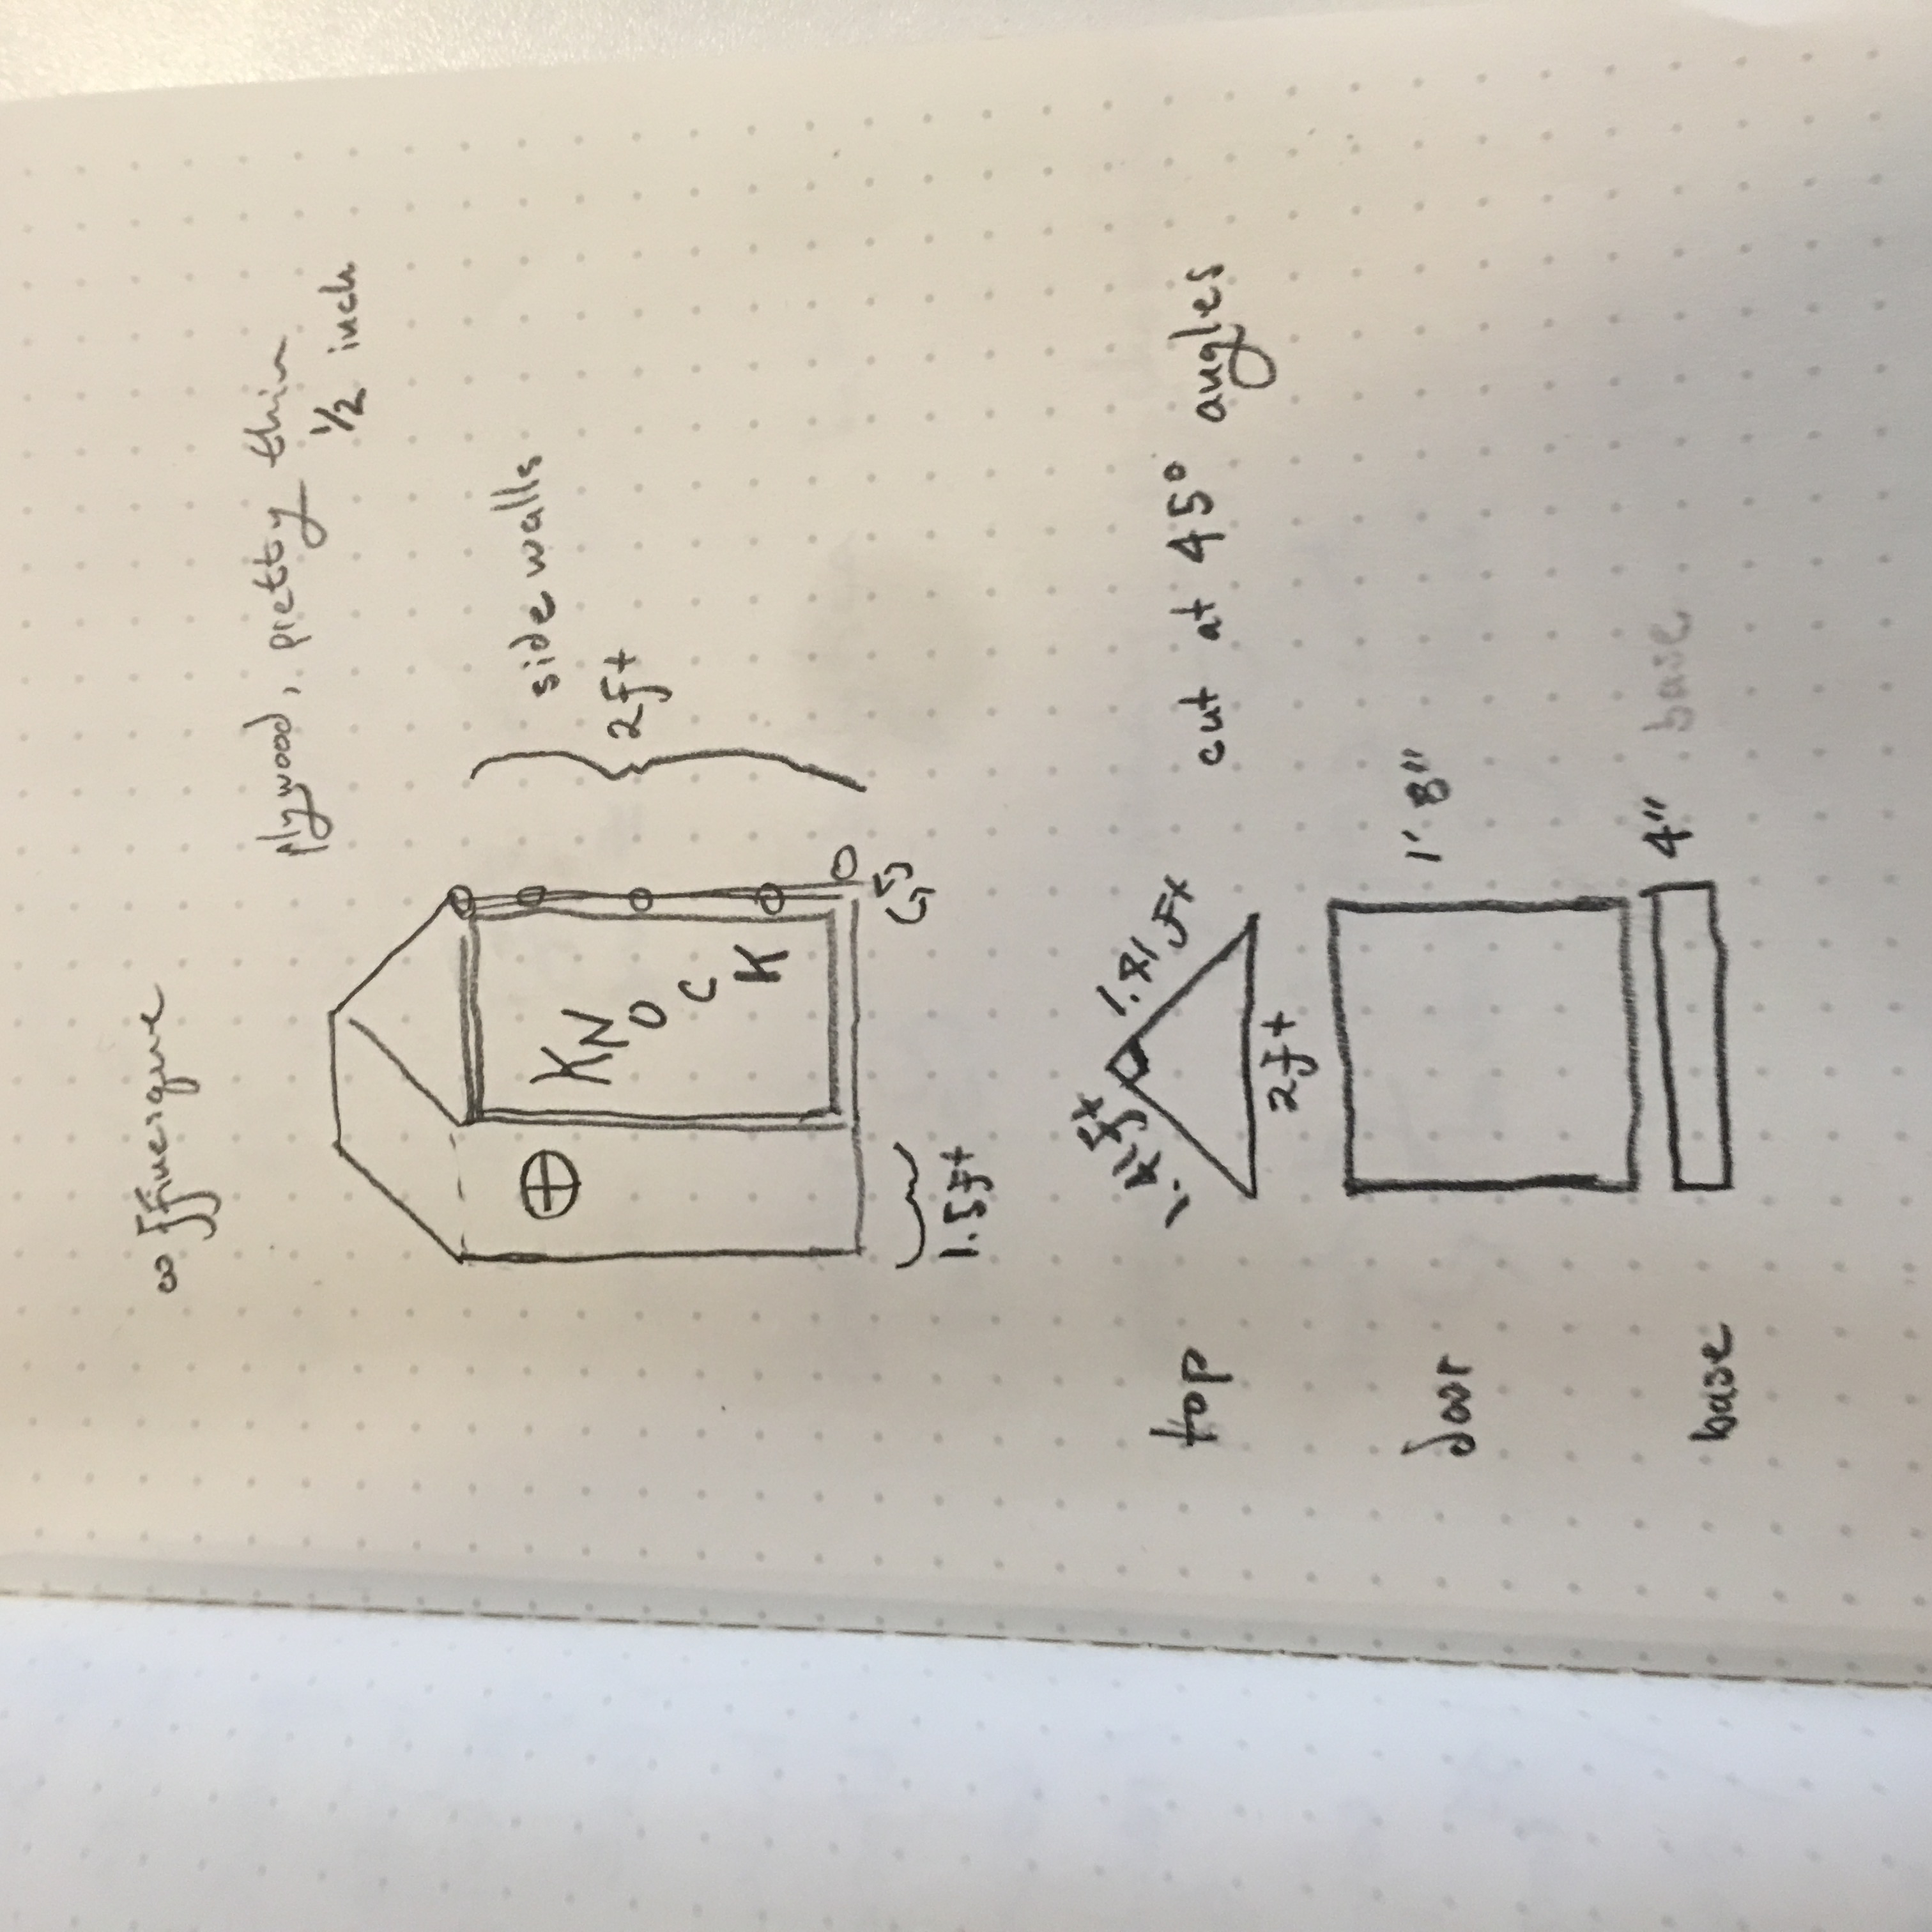 coffinesque
plywood, pretty thin
1/2 inch
KNOCK
side walls
2ft
1.5ft
1.41ft
1.41ft
top
cut at 45° angles
2ft
door
1' 8"
4" base
base